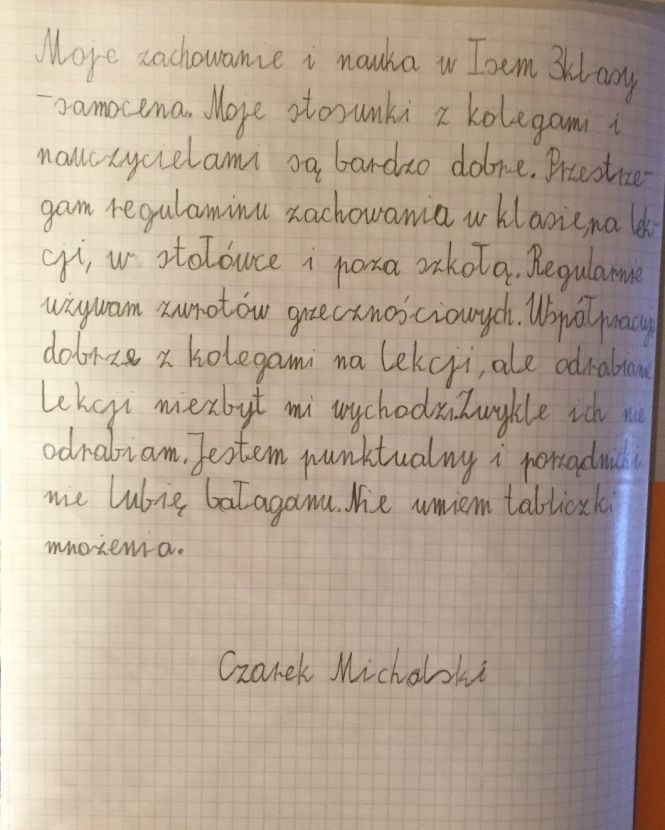 Moje zachowanie i nauka w Isem 3klasy
-samocena. Moje stosunki z kolegami i
nauczycielami są bardzo dobre. Przestrze-
gam regulaminu zachowania w klasie, na lek-
cji, w stołówce i poza szkołą. Regularnie
używam zwrotów grzecznościowych. Współpracuję
dobrze z kolegami na lekcji, ale odrabianie
lekcji niezbyt mi wychodzi. Zwykle ich nie
odrabiam. Jestem punktualny i porządnicki
nie lubię bałaganu. Nie umiem tabliczki
mnożenia.
Czarek Michalski